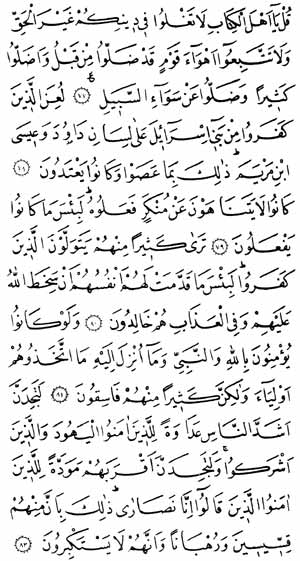 قُلْ يَا اَهْلَ الْكِتَابِ لَا تَغْلُوا فٖى دٖينِكُمْ غَيْرَ الْحَقِّ
وَلَا تَتَّبِعُٓوا اَهْوَٓاءَ قَوْمٍ قَدْ ضَلُّوا مِنْ قَبْلُ وَاَضَلُّوا
كَثٖيرًا وَضَلُّوا عَنْ سَوَٓاءِ السَّبٖيلِ لُعِنَ الَّذٖينَ
كَفَرُوا مِنْ بَنٖٓى اِسْرَٓائٖلَ عَلٰى لِسَانِ دَاوُ۫دَ وَعٖيسَى
ابْنِ مَرْيَمَ ذٰلِكَ بِمَا عَصَوْا وَكَانُوا يَعْتَدُونَ
كَانُوا لَا يَتَنَاهَوْنَ عَنْ مُنْكَرٍ فَعَلُوهُ لَبِئْسَ مَا كَانُوا
يَفْعَلُونَ تَرٰى كَثٖيرًا مِنْهُمْ يَتَوَلَّوْنَ الَّذٖينَ
كَفَرُوا لَبِئْسَ مَا قَدَّمَتْ لَهُمْ اَنْفُسُهُمْ اَنْ سَخِطَ اللّٰهُ
عَلَيْهِمْ وَفِى الْعَذَابِ هُمْ خَالِدُونَ وَلَوْ كَانُوا
يُؤْمِنُونَ بِاللّٰهِ وَالنَّبِىِّ وَمَٓا اُنْزِلَ اِلَيْهِ مَا اتَّخَذُوهُمْ
اَوْلِيَٓاءَ وَلٰكِنَّ كَثٖيرًا مِنْهُمْ فَاسِقُونَ لَتَجِدَنَّ
اَشَدَّ النَّاسِ عَدَاوَةً لِلَّذٖينَ اٰمَنُوا الْيَهُودَ وَالَّذٖينَ
اَشْرَكُوا وَلَتَجِدَنَّ اَقْرَبَهُمْ مَوَدَّةً لِلَّذٖينَ
اٰمَنُوا الَّذٖينَ قَالُٓوا اِنَّا نَصَارٰى ذٰلِكَ بِاَنَّ مِنْهُمْ
قِسّٖيسٖينَ وَرُهْبَانًا وَاَنَّهُمْ لَا يَسْتَكْبِرُونَ